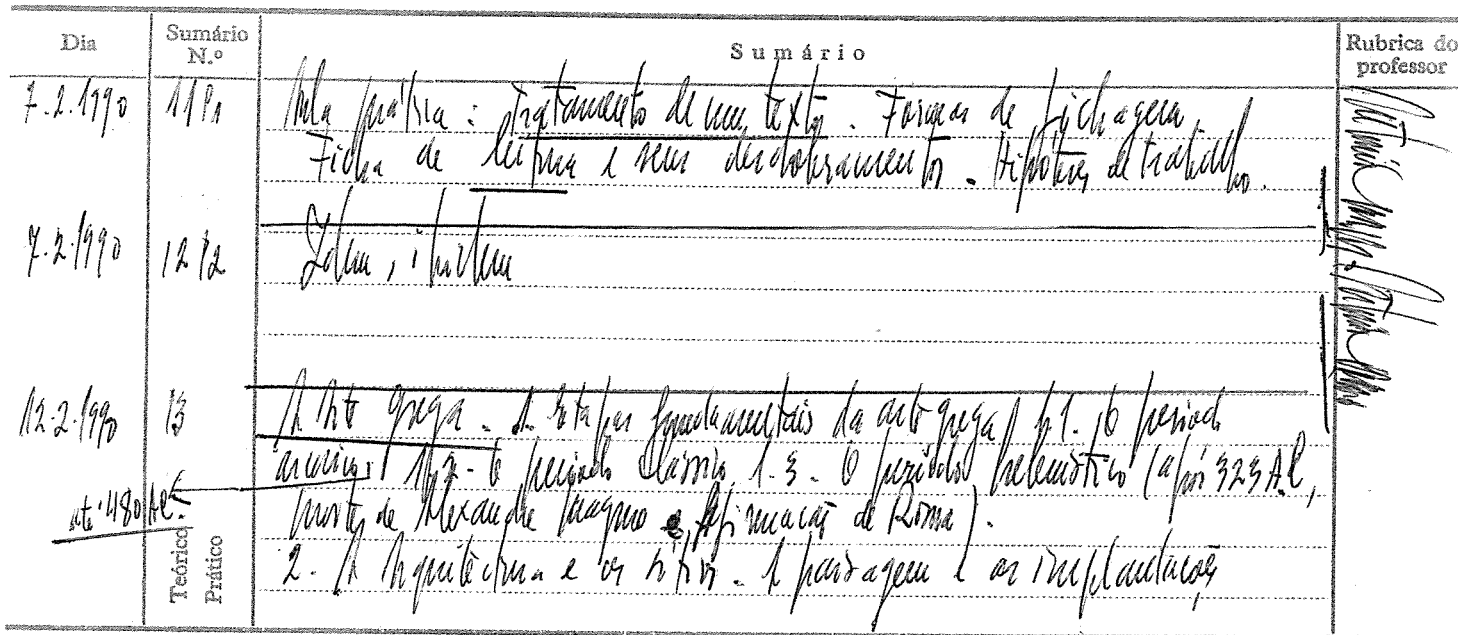 Dia Sumário N.º Sumário Rubrica do professor
7.2.1990 11 P1 Aula prática : Tratamento de um texto. Formas de fichagem
Ficha de leitura e seus desdobramentos. Hipóteses de trabalho.
7.2.1990 12 P2 Idem, ibidem
12.2.1990 13 A Arte grega. 1. Etapas fundamentais da arte grega 1.1. O período
arcaico: 1.2 - O período Clássico 1.3. O período helenístico (após 323 A.C,
até 480 AC. morte de Alexandre Magno e afirmação de Roma).
2. A Arquitectura e os sítios. A paisagem e as implantações
Teórico
Prático